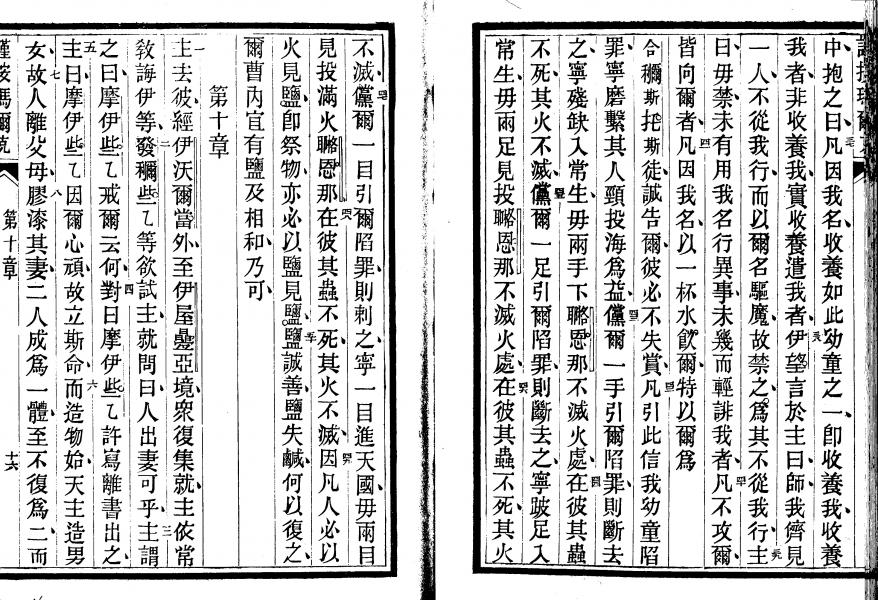 中抱之曰凡因我名收養如此幼童之一卽收養我收養
我者非收養我實收養遣我者伊望言於主曰師我儕見
一人不從我行而以爾名驅魔故禁之爲其不從我行主
曰毋禁未有用我名行異事未幾而輕誹我者凡不攻爾
皆向爾者凡因我名以一杯水飲爾特以爾爲
合穪斯托斯徒誠告爾彼必不失賞凡引此信我幼童陷
罪寧磨繫其人頸投海爲益儻爾一手引爾陷罪則斷去
之寧殘缺入常生毋兩手下聮恩那不滅火處在彼其蟲
不死其火不滅儻爾一足引爾陷罪則斷去之寧跛足入
常生毋兩足見投聮恩那不滅火處在彼其蟲不死其火
不滅儻爾一目引爾陷罪則刺之寧一目進天國毋兩目
見投滿火聮恩那在彼其蟲不死其火不滅因凡人必以
火見鹽卽祭物亦必以鹽見鹽鹽誠善鹽失鹹何以復之
爾曹內宜有鹽及相和乃可
第十章
主去彼經伊沃爾當外至伊屋疊亞境衆復集就主依常
敎誨伊等發穪些乚等欲試主就問曰人出妻可乎主謂
之曰摩伊些乚戒爾云何對曰摩伊些乚許寫離書出之
主曰摩伊些乚因爾心頑故立斯命而造物始天主造男
女故人離父母膠漆其妻二人成爲一體至不復爲二而
第十章
十六